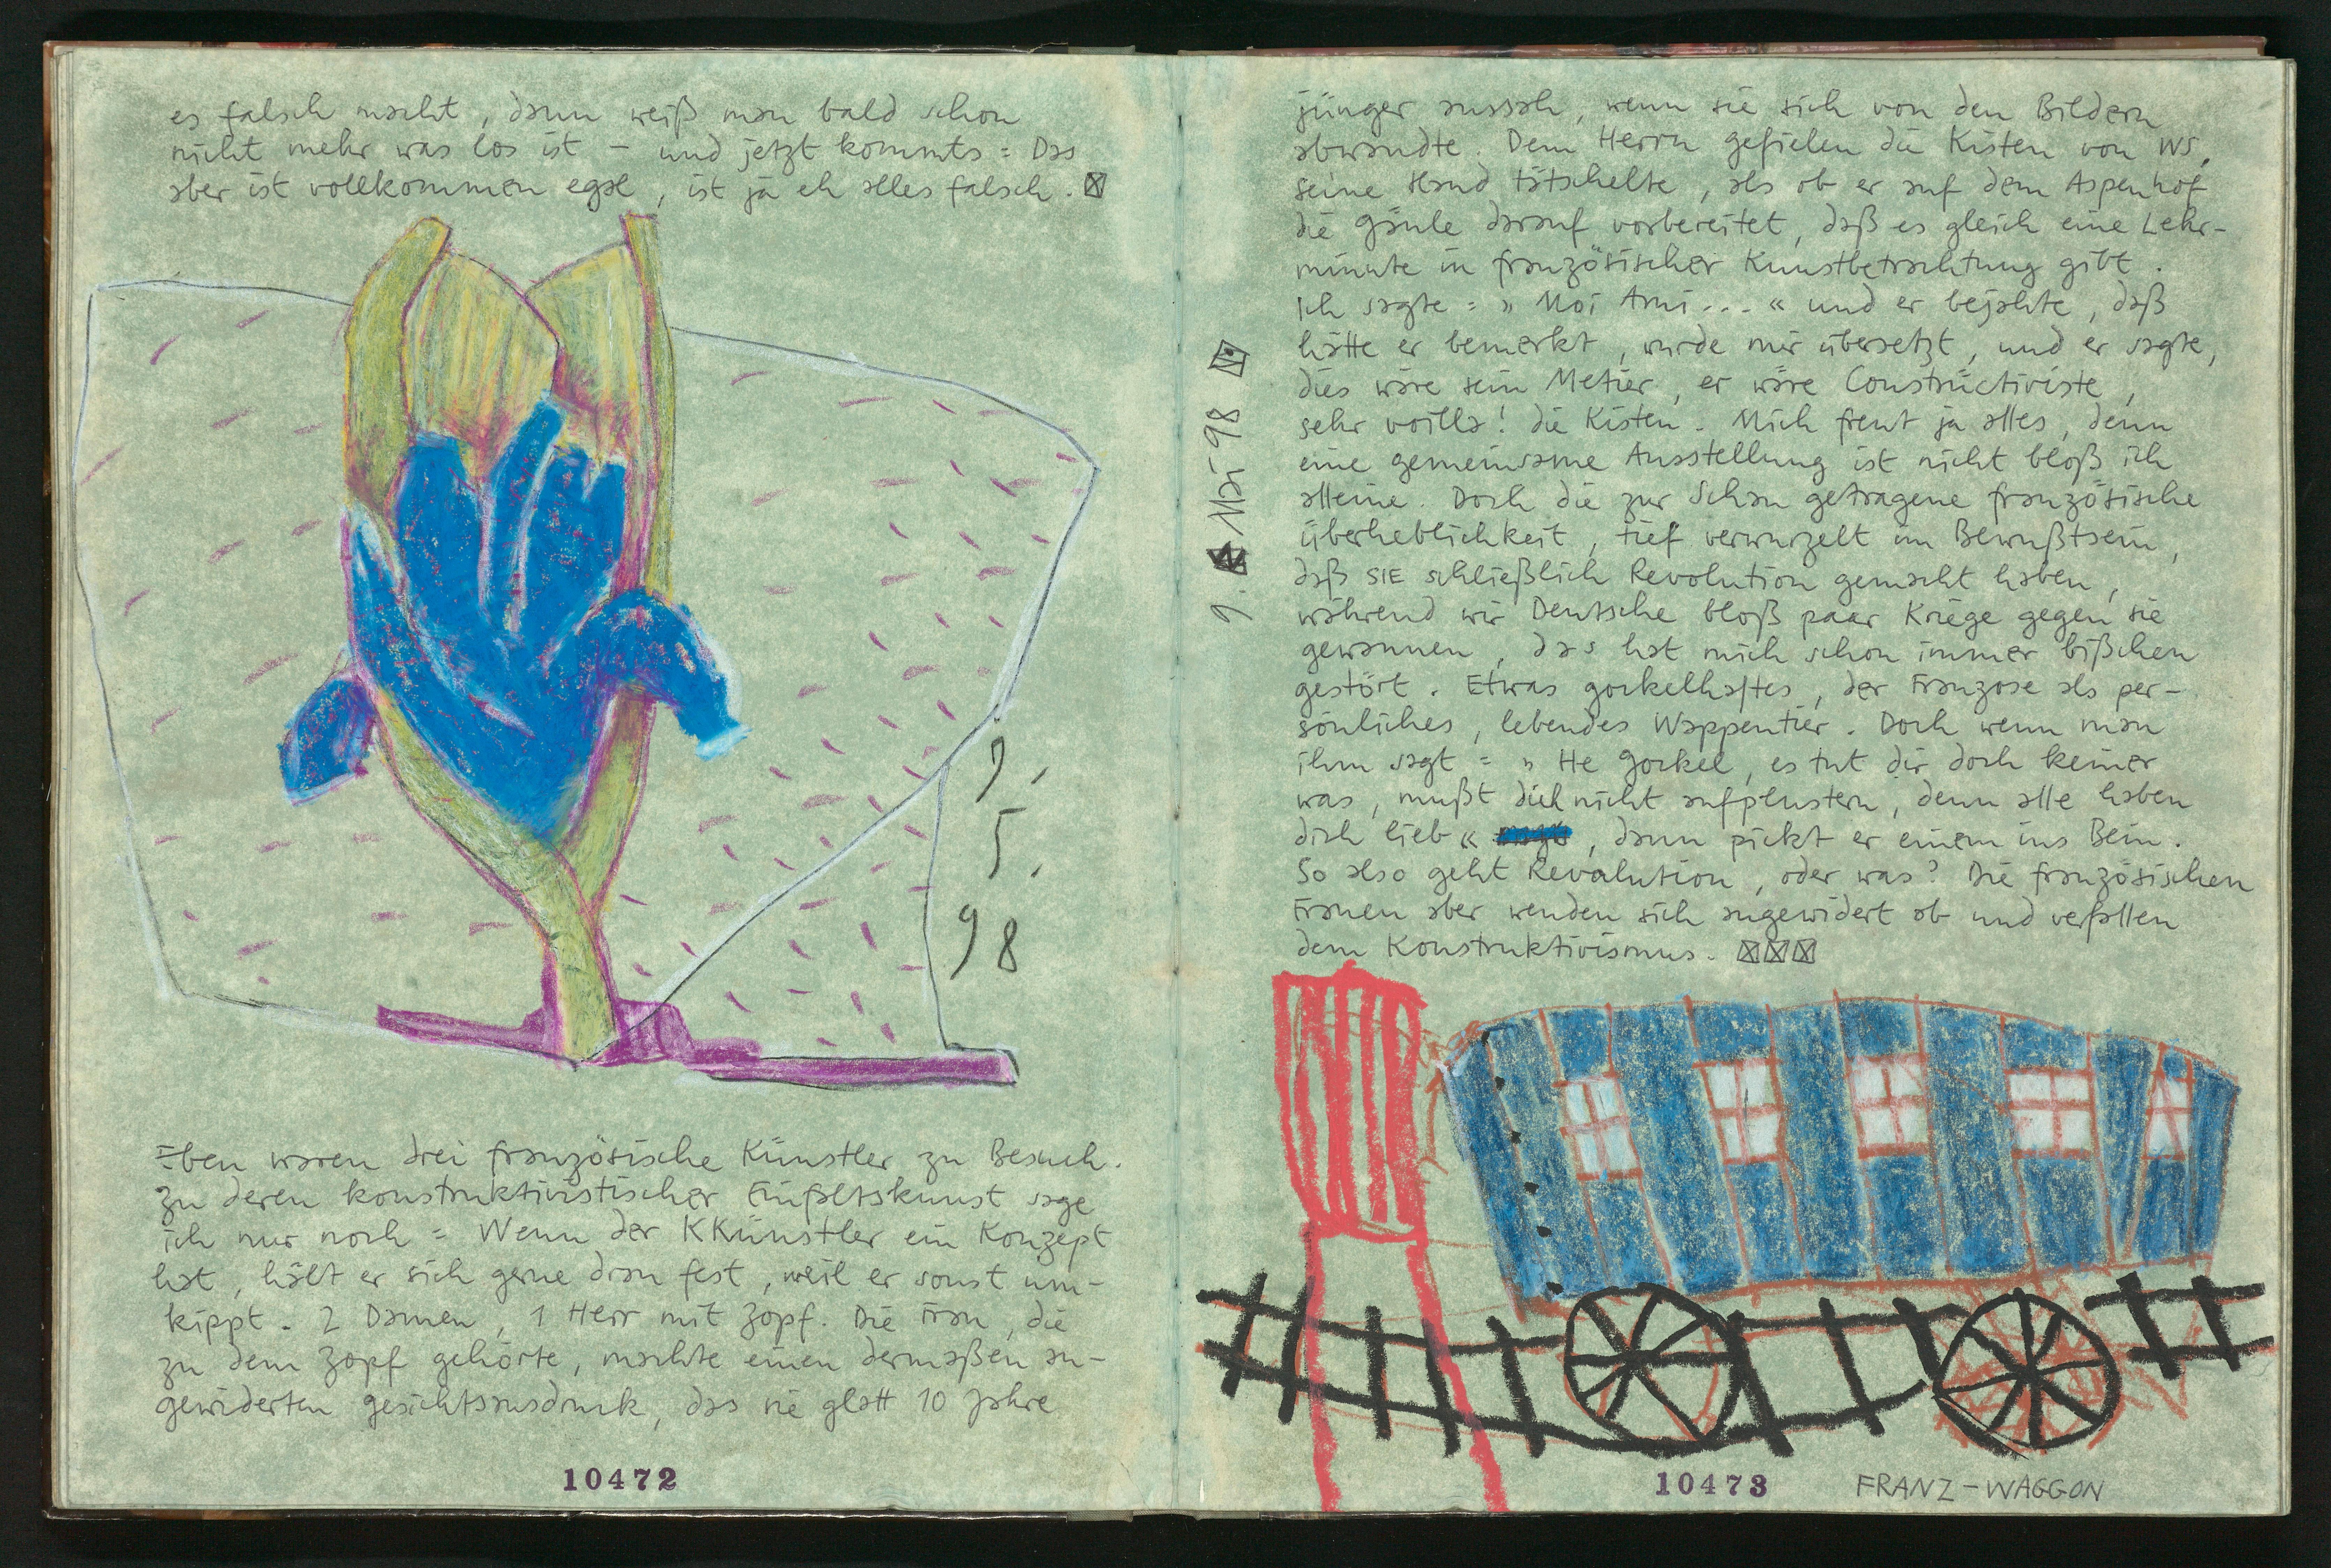 es falsch macht, dann weiß man bald schon
nicht mehr was los ist – und jetzt kommts = Das
aber ist vollkommen egal, ist ja eh alles falsch.
9.
5.
98
Eben waren drei französische Künstler zu Besuch.
Zu deren konstruktivistischer Einfaltskunst sage
ich nur noch = Wenn der KKünstler ein Konzept
hat, hält er sich gerne dran fest, weil er sonst um-
kippt. 2 Damen, 1 Herr mit Zopf. Die Frau, die
zu dem Zopf gehörte, machte einen dermaßen an-
gewiderten Gesichtsausdruck, das sie glatt 10 Jahre
10472
9. Mai 98
jünger aussah, wenn sie sich von den Bildern
abwandte. Dem Herrn gefielen die Kisten von WS,
seine Hand tätschelte, als ob er auf dem Aspenhof
die Gäule darauf vorbereitet, daß es gleich eine Lehr-
minute in französischer Kunstbetrachtung gibt.
Ich sagte = » Moi Ami... « und er bejahte, daß
hätte er bemerkt, wurde mir übersetzt, und er sagte,
dies wäre sein Metier, er wäre Constructiviste,
sehr voilla! die Kisten. Mich freut ja alles, denn
eine gemeinsame Ausstellung ist nicht bloß ich
alleine. Doch die zur Schau getragene französische
Überheblichkeit, tief verwurzelt im Bewußtsein,
daß SIE schließlich Revolution gemacht haben,
während wir Deutsche bloß paar Kriege gegen sie
gewannen, das hat mich schon immer bißchen
gestört. Etwas gockelhaftes, der Franzose als per-
sönliches, lebendes Wappentier. Doch wenn man
ihm sagt = » He Gockel, es tut dir doch keiner
was, mußt dich nicht aufplustern, denn alle haben
dich lieb «, dann pickt er einem ins Bein.
So also geht Revolution, oder was? Die französischen
Frauen aber wenden sich angewidert ab und verfallen
dem Konstruktivismus.
10473
FRANZ-WAGGON